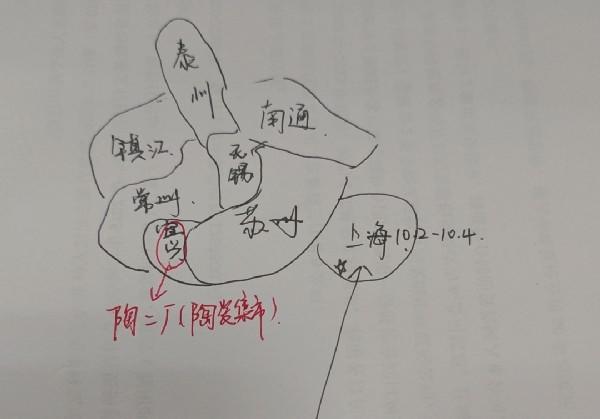 泰州
南通
镇江
无锡
常州
宜兴
苏州
上海10.2-10.4.
陶二厂(陶瓷集市)